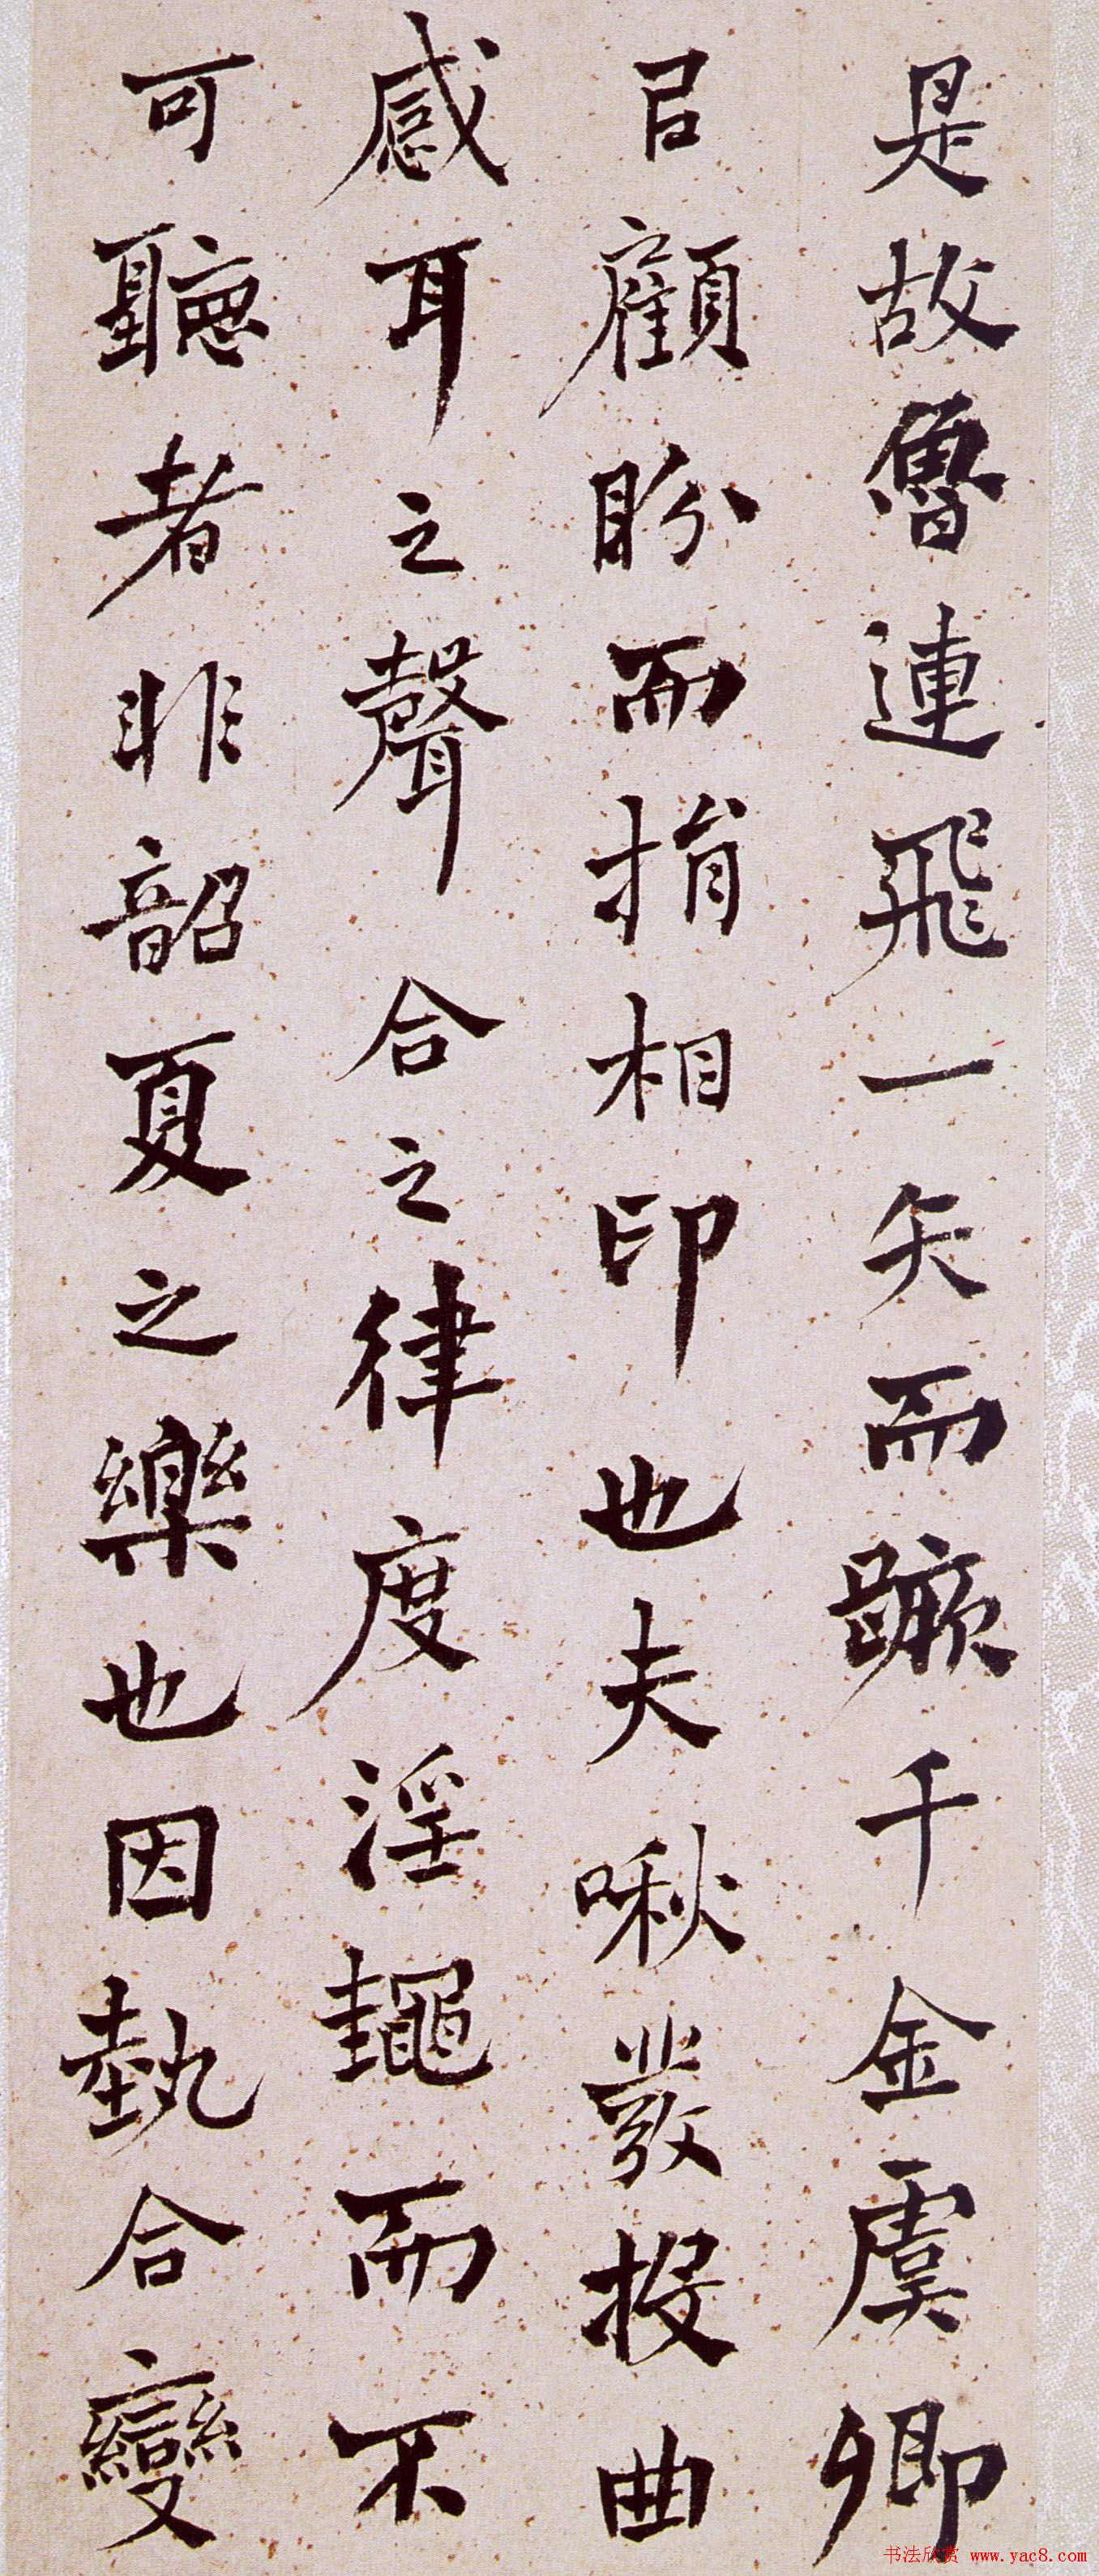 是故魯連飛一矢而蹶千金虞卿
㠯顧盼而捐相印也夫啾發投曲
感耳之聲合之律度淫䵷而不
可聽者非韶夏之樂也因埶合變
书法欣赏 www.yac8.com